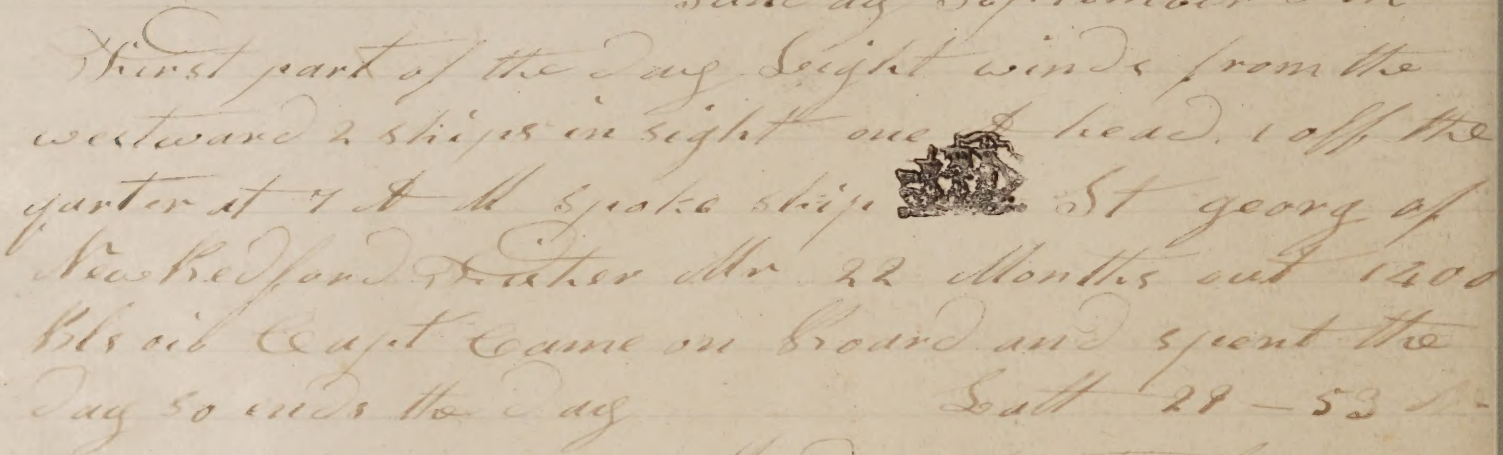 Fhirst part of the day Leight winds from the
westward 2 ships in sight one A head 1 off the
qurter at 7 A M spoke ship St georg of
New Bedford Mr 22 Months out 1200
Bls oil Capt Came on Board and spent the
day so ends the day Latt 29 - 53